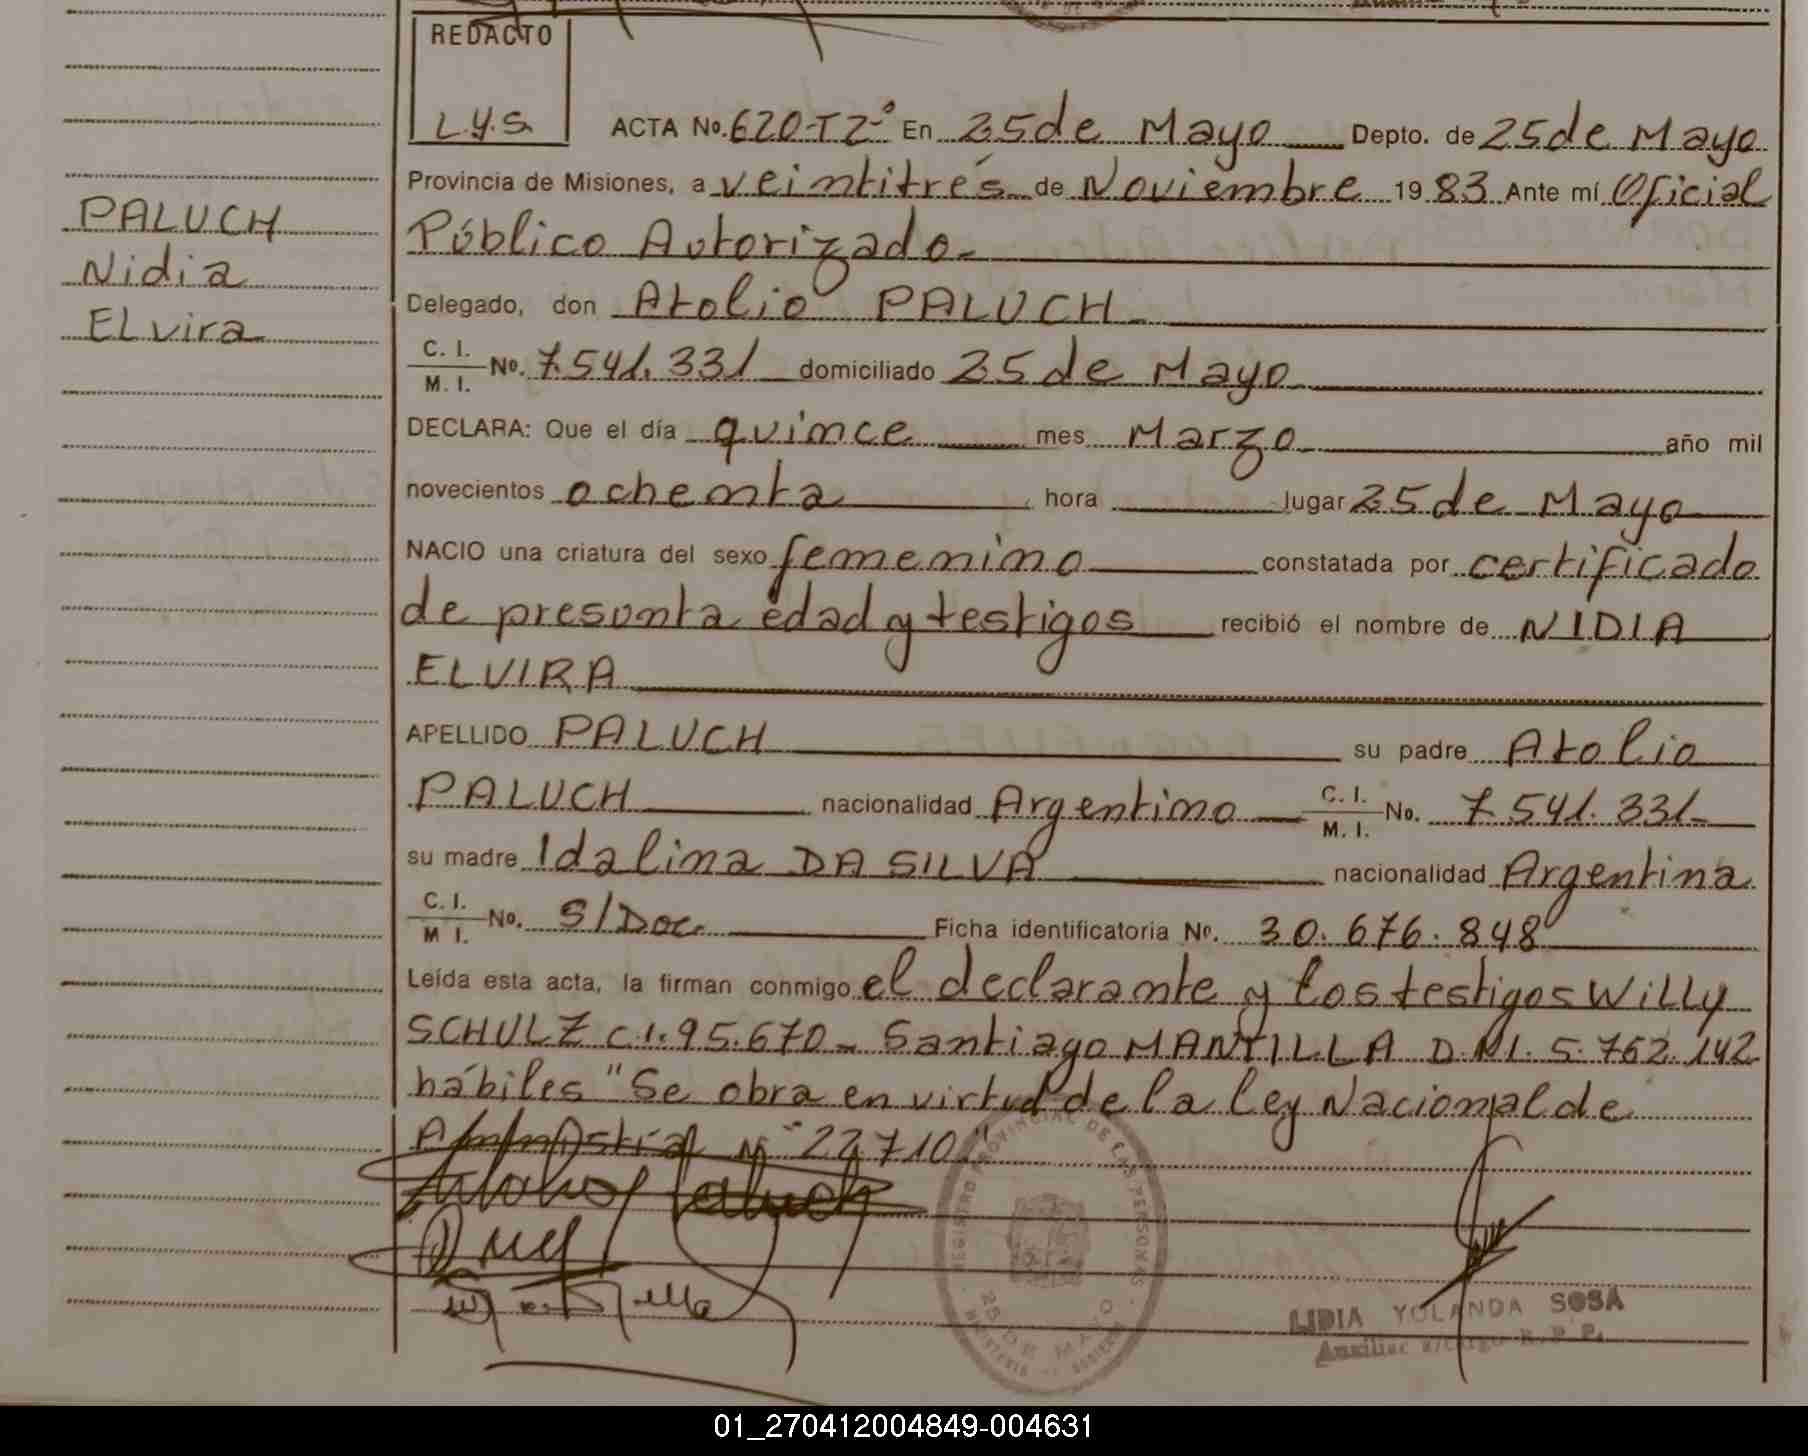 REDACTO
L.Y.S. ACTA No. 620-T2-° En 25 de Mayo Depto. de 25 de Mayo
Provincia de Misiones, a veintitrés de Noviembre 1983 Ante mí Oficial
Público Autorizado
Delegado, don Atolio PALUCH
C. I. / M. I. No. 7.541.331 domiciliado 25 de Mayo
DECLARA: Que el día quince mes Marzo año mil
novecientos ochenta hora lugar 25 de Mayo
NACIO una criatura del sexo femenino constatada por certificado
de presunta edad y testigos recibió el nombre de NIDIA
ELVIRA
APELLIDO PALUCH su padre Atolio
PALUCH nacionalidad Argentino C. I. / M. I. No. 7.541.331
su madre Idalina DA SILVA nacionalidad Argentina
C. I. / M I. No. S/Doc. Ficha identificatoria No. 30.676.848
Leída esta acta, la firman conmigo el declarante y los testigos WILLY
SCHULZ C.I. 95.670 - Santiago MANTILLA D.N.I. 5.762.142
hábiles "Se obra en virtud de la ley Nacional de
N° 22.710"
PALUCH
Nidia
ELvira
REGISTRO PROVINCIAL DE LAS PERSONAS
25 DE MAYO
LIDIA YOLANDA SOSA
Auxiliar a/cargo R. P. P.
01_270412004849-004631